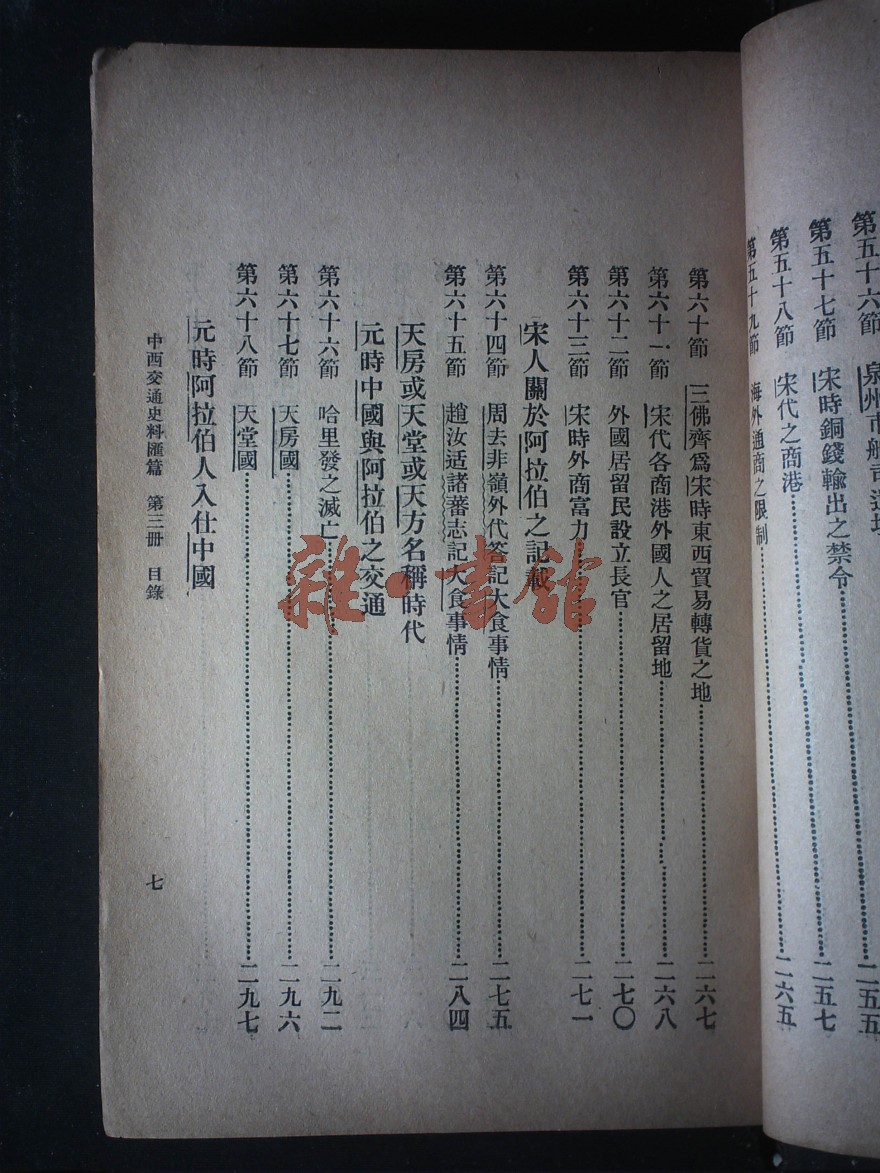 第五十六節 泉州市舶司遺址……二五五
第五十七節 宋時銅錢輸出之禁令……二五七
第五十八節 宋代之商港……二六五
第五十九節 海外通商之限制……
第六十節 三佛齊爲宋時東西貿易轉貨之地……二六七
第六十一節 宋代各商港外國人之居留地……二六八
第六十二節 外國居留民設立長官……二七〇
第六十三節 宋時外商富力……二七一
宋人關於阿拉伯之記載
第六十四節 周去非嶺外代答記大食事情……二七五
第六十五節 趙汝适諸蕃志記大食事情……二八四
天房或天堂或天方名稱時代
元時中國與阿拉伯之交通
第六十六節 哈里發之滅亡……二九二
第六十七節 天房國……二九六
第六十八節 天堂國……二九七
元時阿拉伯人入仕中國
中西交通史料匯篇 第三冊 目錄 七
雜·書館